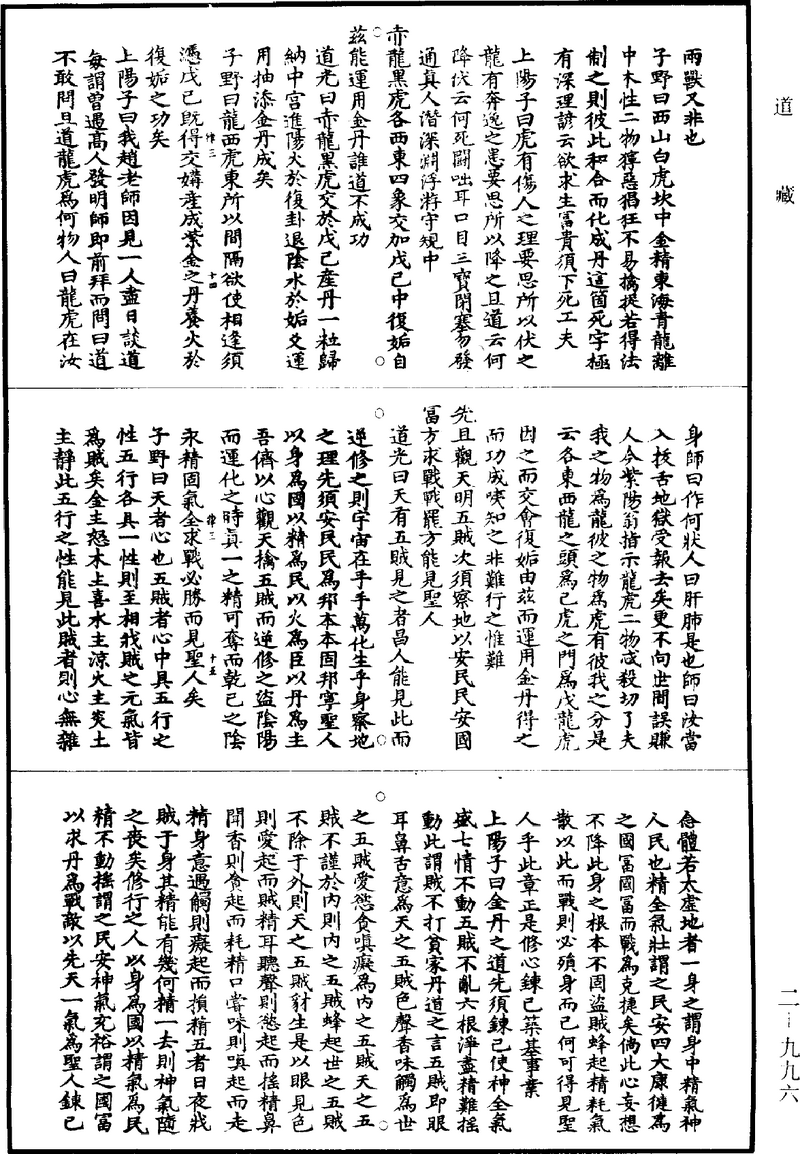 道藏
兩獸又非也
子野曰西山白虎坎中金精東海青龍離
中木性二物獰惡猖狂不易擒捉若得法
制之則彼此和合而化成丹這箇死字極
有深理諺云欲求生富貴須下死工夫
上陽子曰虎有傷人之理要思所以伏之
龍有奔逸之患要思所以降之且道云何
降伏云何死鬪咄耳口目三寶閉塞勿發
通真人潛深淵浮游守規中
赤龍黑虎各西東四象交加戊己中復姤自
茲能運用金丹誰道不成功
道光曰赤龍黑虎交於戊己産丹一粒歸
納中宮進陽火於復卦退陰水於姤爻運
用抽添金丹成矣
子野曰龍西虎東所以間隔欲使相逢須
律三 十四
憑戊己既得交媾産成紫金之丹養火於
復姤之功矣
上陽子曰我趙老師因見一人盡日談道
每謂曾遇髙人發明師即前拜而問曰道
不敢問且道龍虎為何物人曰龍虎在汝
身師曰作何狀人曰肝肺是也師曰汝當
入拔舌地獄受報去矣更不向世間誤賺
人今紫陽翁指示龍虎二物忒殺切了夫
我之物為龍彼之物為虎有彼我之分是
云各東西龍之頭為己虎之門為戊龍虎
因之而交會復姤由茲而運用金丹得之
而功成噫知之非難行之惟難
先且觀天明五賊次須察地以安民民安國
富方求戰戰罷方能見聖人
道光曰天有五賊見之者昌人能見此而
逆修之則宇宙在乎手萬化生乎身察地
之理先須安民民為邦本本固邦寧聖人
以身為國以精為民以火為臣以丹為主
吾儕以心觀天擒五賊而逆修之盜陰陽
而運化之時真一之精可奪而乾己之陰
律三 十五
汞精固氣全求戰必勝而見聖人矣
子野曰天者心也五賊者心中具五行之
性五行各具一性則至相戕賊之元氣皆
為賊矣金主怒木主喜水主凉火主炎土
主靜此五行之性能見此賊者則心無雜
念體若太虛地者一身之謂身中精氣神
人民也精全氣壯謂之民安四大康健為
之國富國富而戰為克捷矣倘此心妄想
不降此身之根本不固盜賊蜂起精耗氣
散以此而戰則必殞身而已何可得見聖
人乎此章正是修心鍊己築基事業
上陽子曰金丹之道先須鍊己使神全氣
盛七情不動五賊不亂六根淨盡精難摇
動此謂賊不打貧家丹道之言五賊即眼
耳鼻舌意為天之五賊色聲香味觸為世
之五賊愛慾貪嗔癡為內之五賊天之五
賊不謹於內則內之五賊蜂起世之五賊
不除于外則天之五賊豺生是以眼見色
則愛起而賊精耳聽聲則慾起而摇精鼻
聞香則貪起而耗精口嘗味則嗔起而走
精身意遇觸則癡起而損精五者日夜戕
賊于身其精能有幾何精一去則神氣隨
之喪矣修行之人以身為國以精氣為民
精不動摇謂之民安神氣充裕謂之國富
以求丹為戰敵以先天一氣為聖人鍊己
二—九九六